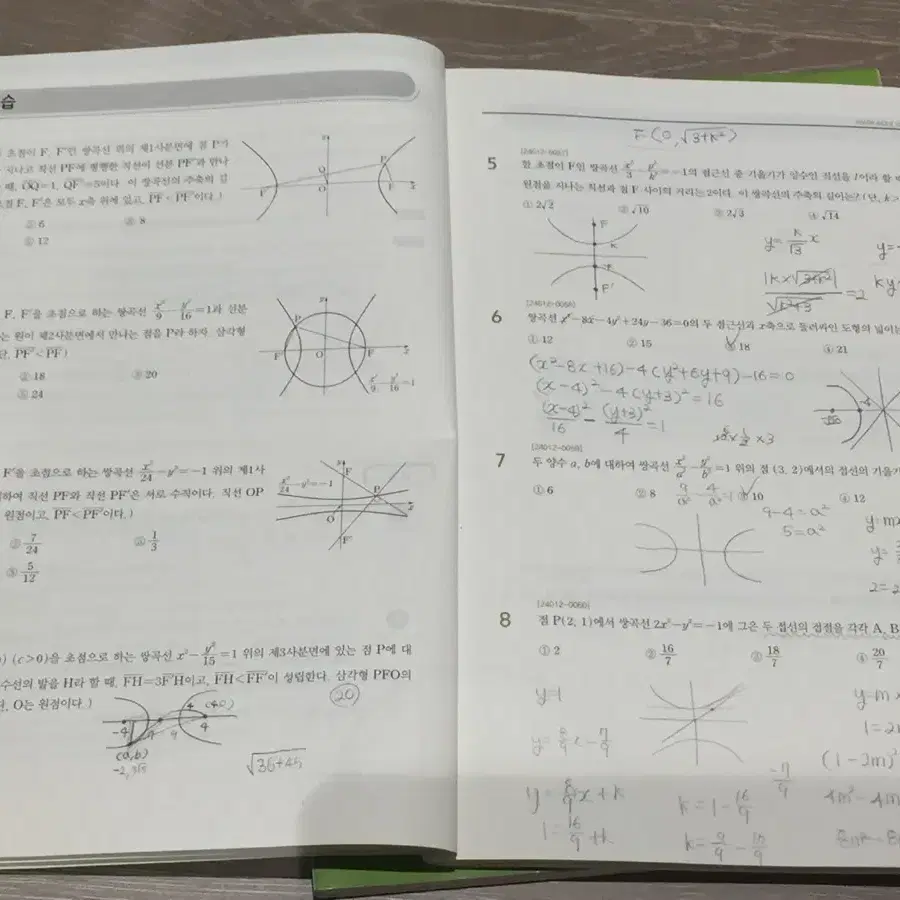 습
초점이 F, F′인 쌍곡선 위의 제1사분면에 점 P가
지나고 직선 PF에 평행한 직선이 선분 PF′과 만나
때, OQ=1, QF′=5이다. 이 쌍곡선의 주축의 길
초점 F, F′은 모두 x축 위에 있고, PF<PF′이다.)
② 6
③ 8
⑤ 12
F, F′을 초점으로 하는 쌍곡선 x²/9 - y²/16 = 1과 선분
는 원이 제2사분면에서 만나는 점을 P라 하자. 삼각형
단, PF′<PF)
② 18
③ 20
⑤ 24
x²/9 - y²/16 = 1
F′을 초점으로 하는 쌍곡선 x²/24 - y² = -1 위의 제1사
하여 직선 PF와 직선 PF′은 서로 수직이다. 직선 OP
원점이고, PF<PF′이다.)
② 7/24
③ 1/3
⑤ 5/12
x²/24 - y² = -1
) (c>0)을 초점으로 하는 쌍곡선 x² - y²/15 = 1 위의 제3사분면에 있는 점 P에 대
수선의 발을 H라 할 때, FH=3F′H이고, FH<FF′이 성립한다. 삼각형 PFO의
단, O는 원점이다.)
20
(4,0)
-4
4
(a,b)
√36+45
F(0, √3+k²)
[24012-0057]
5 한 초점이 F인 쌍곡선 x²/3 - y²/k² = -1의 점근선 중 기울기가 양수인 직선을 l이라 할 때
원점을 지나는 직선과 점 F 사이의 거리는 2이다. 이 쌍곡선의 주축의 길이는? (단, k>
① 2√2
② √10
③ 2√3
④ √14
y = k/√3 x
=2
[24012-0058]
6 쌍곡선 x²-8x-4y²+24y-36=0의 두 점근선과 x축으로 둘러싸인 도형의 넓이는
① 12
② 15
③ 18
④ 21
(x²-8x+16)-4(y²+6y+9)-16=0
(x-4)²-4(y+3)²=16
(x-4)²/16 - (y+3)²/4 = 1
[24012-0059]
7 두 양수 a, b에 대하여 쌍곡선 x²/a² - y²/b² = 1 위의 점 (3, 2)에서의 접선의 기울기
① 6
② 8
③ 10
④ 12
9/a² - 4/a² = 1
9-4=a²
5=a²
[24012-0060]
8 점 P(2, 1)에서 쌍곡선 2x²-y²=-1에 그은 두 접선의 접점을 각각 A, B
① 2
② 16/7
③ 18/7
④ 20/7
y=1
y=8/9x-7/9
y=8/9x+k
1=16/9+k
k=1-16/9
k=9/9-16/9
-7/9
(1-2m)²